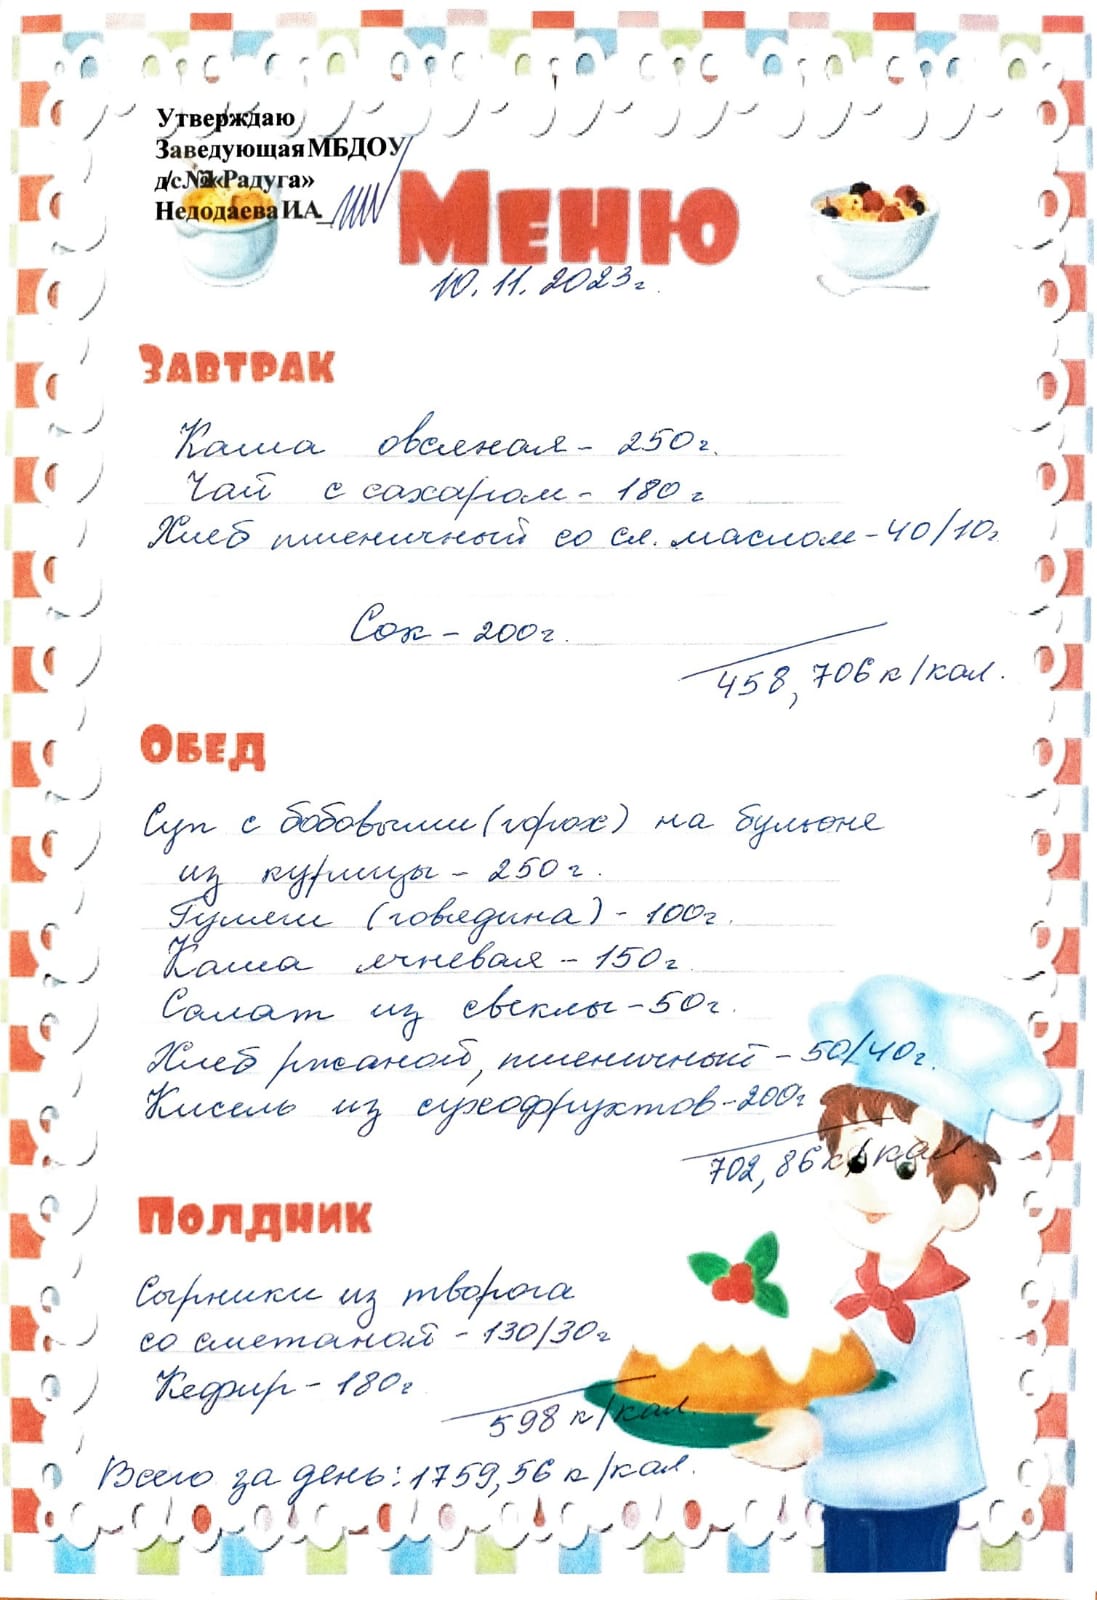 Утверждаю
Заведующая МБДОУ
д/с№ «Радуга»
Недодаева И.А.
Меню
10.11.2023г.
Завтрак
Каша овсяная - 250г.
Чай с сахаром - 180г
Хлеб пшеничный со сл. маслом - 40/10г
Сок - 200г.
458,706 к/кал.
Обед
Суп с бобовыми (горох) на бульоне
из курицы - 250г.
Гуляш (говядина) - 100г.
Каша ячневая - 150г.
Салат из свеклы - 50г.
Хлеб ржаной, пшеничный - 50/40г.
Кисель из сухофруктов - 200г
702,86 к/кал.
Полдник
Сырники из творога
со сметаной - 130/30г
Кефир - 180г
598 к/кал.
Всего за день: 1759,56 к/кал.